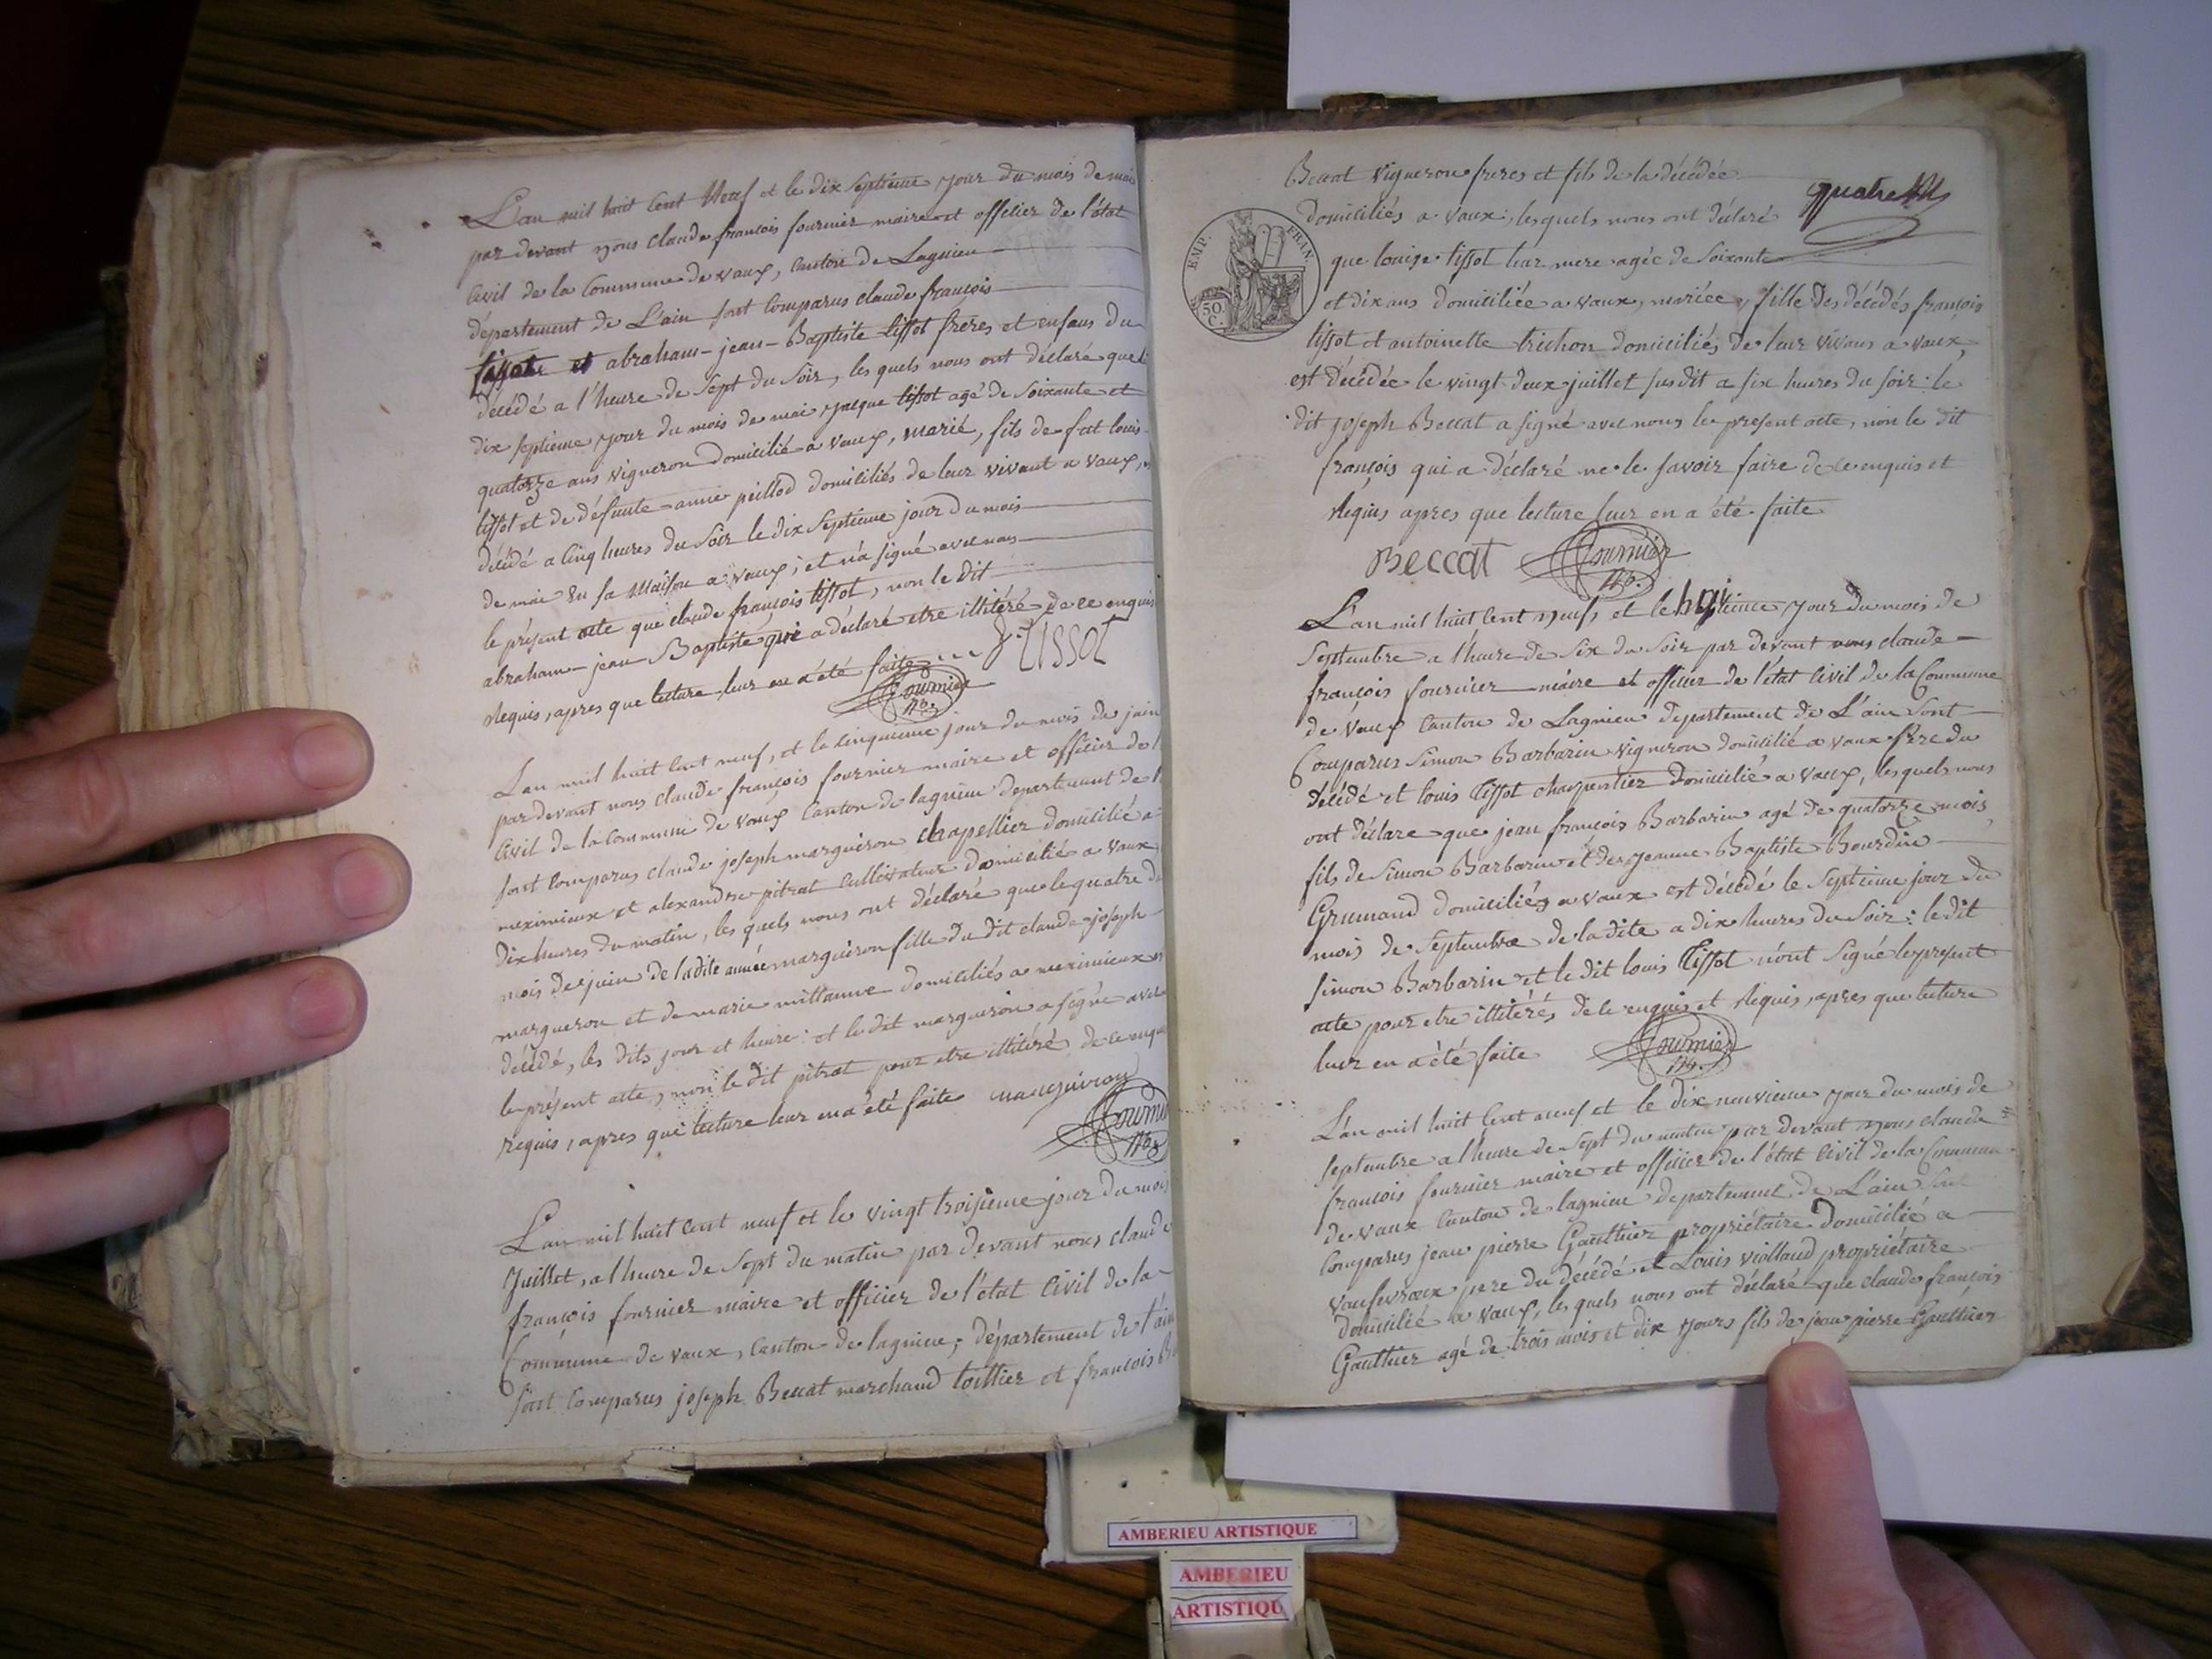 L'an mil huit Cent Neuf et le dix Septieme jour du mois de mai
par devant nous claude françois fournier maire et officier de l'état
Civil de la Commune de vaux, canton de Lagnieu
département de L'ain sont Comparus claude françois
tissot et abraham-jean-Baptiste tissot freres et enfans du
décédé a l'heure de Sept du Soir, les quels nous ont déclaré que le
dix septieme jour du mois de mai jacque tissot agé de Soixante et
quatorze ans vigneron domicilié a vaux, marié, fils de fut louis
tissot et de défunte anne peillod domiciliés de leur vivant a vaux,
décédé a Cinq heures du Soir le dix Septieme jour du mois
de mai en sa Maison a vaux; et n'a signé avec nous
le présent acte que claude françois tissot, non le dit
abraham-jean-Baptiste qui a déclaré etre illitéré de ce enquis
Requis, apres que lecture leur en a été faite
TISSOT
Fournier
L'an mil huit Cent neuf, et le cinquieme jour du mois de juin
par devant nous claude françois fournier maire et officier de l'
Civil de la Commune de vaux Canton de lagnieu departement de l'
sont Comparus claude joseph marguiron chapellier domicilié a
meximieux et alexandre pitrat Cultivateur domicilié a vaux
dix heures du matin, les quels nous ont déclaré que le quatre du
mois de juin de ladite année marguiron fille du dit claude joseph
margueron et de marie domiciliés a meximieux
décédé, les dits jour et heure: et le dit marguiron a signé avec
le présent acte, non le dit pitrat pour etre illitéré de ce enquis
requis, apres que lecture leur en a été faite marguiron
Fournier
L'an mil huit cent neuf et le vingt troisieme jour du mois
Juillet, a l'heure de Sept du matin par devant nous claude
françois fournier maire et officier de l'état Civil de la
Commune de vaux, Canton de lagnieu; département de l'ain
sont Comparus joseph Beccat marchand toillier et françois
Beccat vigneron freres et fils de la décédée
quatre
domiciliés a vaux; lesquels nous ont déclaré
EMP. FRAN.
50 C.
que louise tissot leur mere agée de Soixante
et dix ans domiciliée a vaux, mariée, fille des décédés françois
tissot et antoinette trichon domiciliés de leur vivans a vaux,
est décédée le vingt deux juillet susdit a six heures du soir: le
dit joseph Beccat a signé avec nous le present acte, non le dit
françois qui a déclaré ne le savoir faire de ce enquis et
Requis apres que lecture leur en a été faite
Beccat Fournier
L'an mil huit Cent neuf et le huitieme jour du mois de
Septembre a l'heure de Six du Soir par devant nous claude
françois fournier maire et officier de l'état Civil de la Commune
de vaux Canton de Lagnieu departement de L'ain Sont
Comparus Simon Barbarin vigneron domicilié a vaux pere du
décédé et louis tissot charpentier domicilié a vaux, lesquels nous
ont déclare que jean françois Barbarin agé de quatorze mois,
fils de Simon Barbarin et de jeanne Baptiste Bourdin
Grumand domiciliés a vaux est décédé le Septieme jour du
mois de Septembre de la dite a dix heures du Soir: le dit
simon Barbarin et le dit louis tissot n'ont Signé le present
acte pour etre illitérés, de ce enquis et Requis, apres que lecture
leur en a été faite
Fournier
L'an mil huit Cent neuf et le dix neuvieme jour du mois de
Septembre a l'heure de Sept du matin par devant nous claude
françois fournier maire et officier de l'état Civil de la Commune
de vaux Canton de lagnieu departement de L'ain Sont
Comparus jean pierre Gauthier propriétaire domicilié a
vaufevroux pere du décédé et Louis viollaud propriétaire
domicilié a vaux, les quels nous ont déclaré que claude françois
Gauthier agé de trois mois et dix jours fils de jean pierre Gauthier
AMBERIEU ARTISTIQUE
AMBERIEU
ARTISTIQU